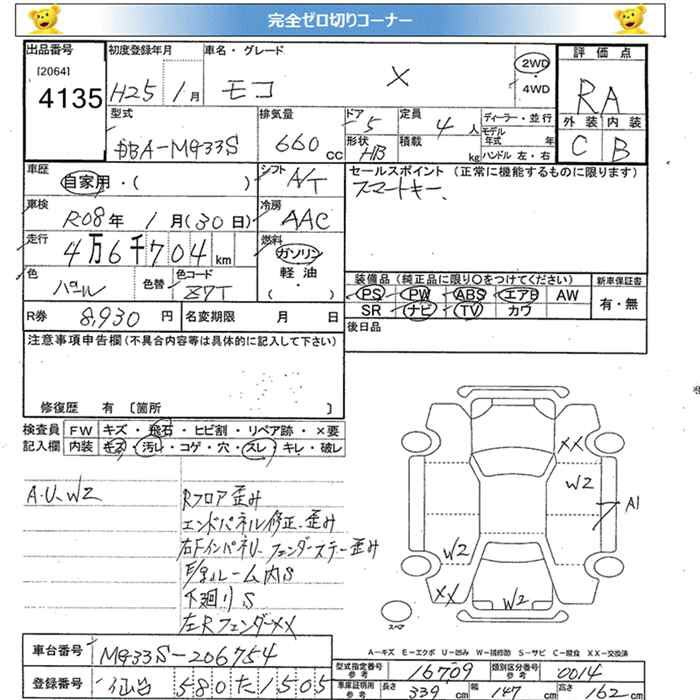 完全ゼロ切りコーナー
出品番号 初度登録年月 車名・グレード 評価点
[2064]
4135 H25 1月 モコ X 2WD・4WD RA
型式 排気量 ドア 定員 ディーラー・並行 外装 内装
DBA-MG33S 660cc 5 4人 モデル年式 年 C B
形状 HB 積載 kg ハンドル 左・右
車歴 シフト セールスポイント (正常に機能するものに限ります)
自家用・( ) A/T スマートキー、
車検 冷房
R08年 1月(30日) AAC
走行 燃料
4万6千704km ガソリン
軽油
・
( )
色 色替 色コード
パール Z7T
装備品 (純正品に限り○をつけてください) 新車保証書
PS PW ABS エアB AW 有・無
SR ナビ TV カワ
R券 8,930円 名変期限 月 日
後日品
注意事項申告欄 (不具合内容等は具体的に記入して下さい)
修復歴 有 〔箇所 〕
検査員 FW キズ・飛石・ヒビ割・リペア跡・×要
記入欄 内装 キズ・汚レ・コゲ・穴・スレ・キレ・破レ
A・U、W2
Rフロア歪み
エンドパネル修正、歪み
右Fインパネリ、フェンダーステー歪み
F/gルーム内S
下廻りS
左Rフェンダーxx
xx
W2
A1
W2
xx
W2
スペア
A-キズ E-エクボ U-凹み W-補修跡 S-サビ C-腐食 XX-交換済
車台番号 MG33S-206754
型式指定番号 参考 16709 類別区分番号 参考 0014
登録番号 仙台 580 た 1505
車庫証明用 参考 長さ 339cm 幅 147cm 高さ 162cm